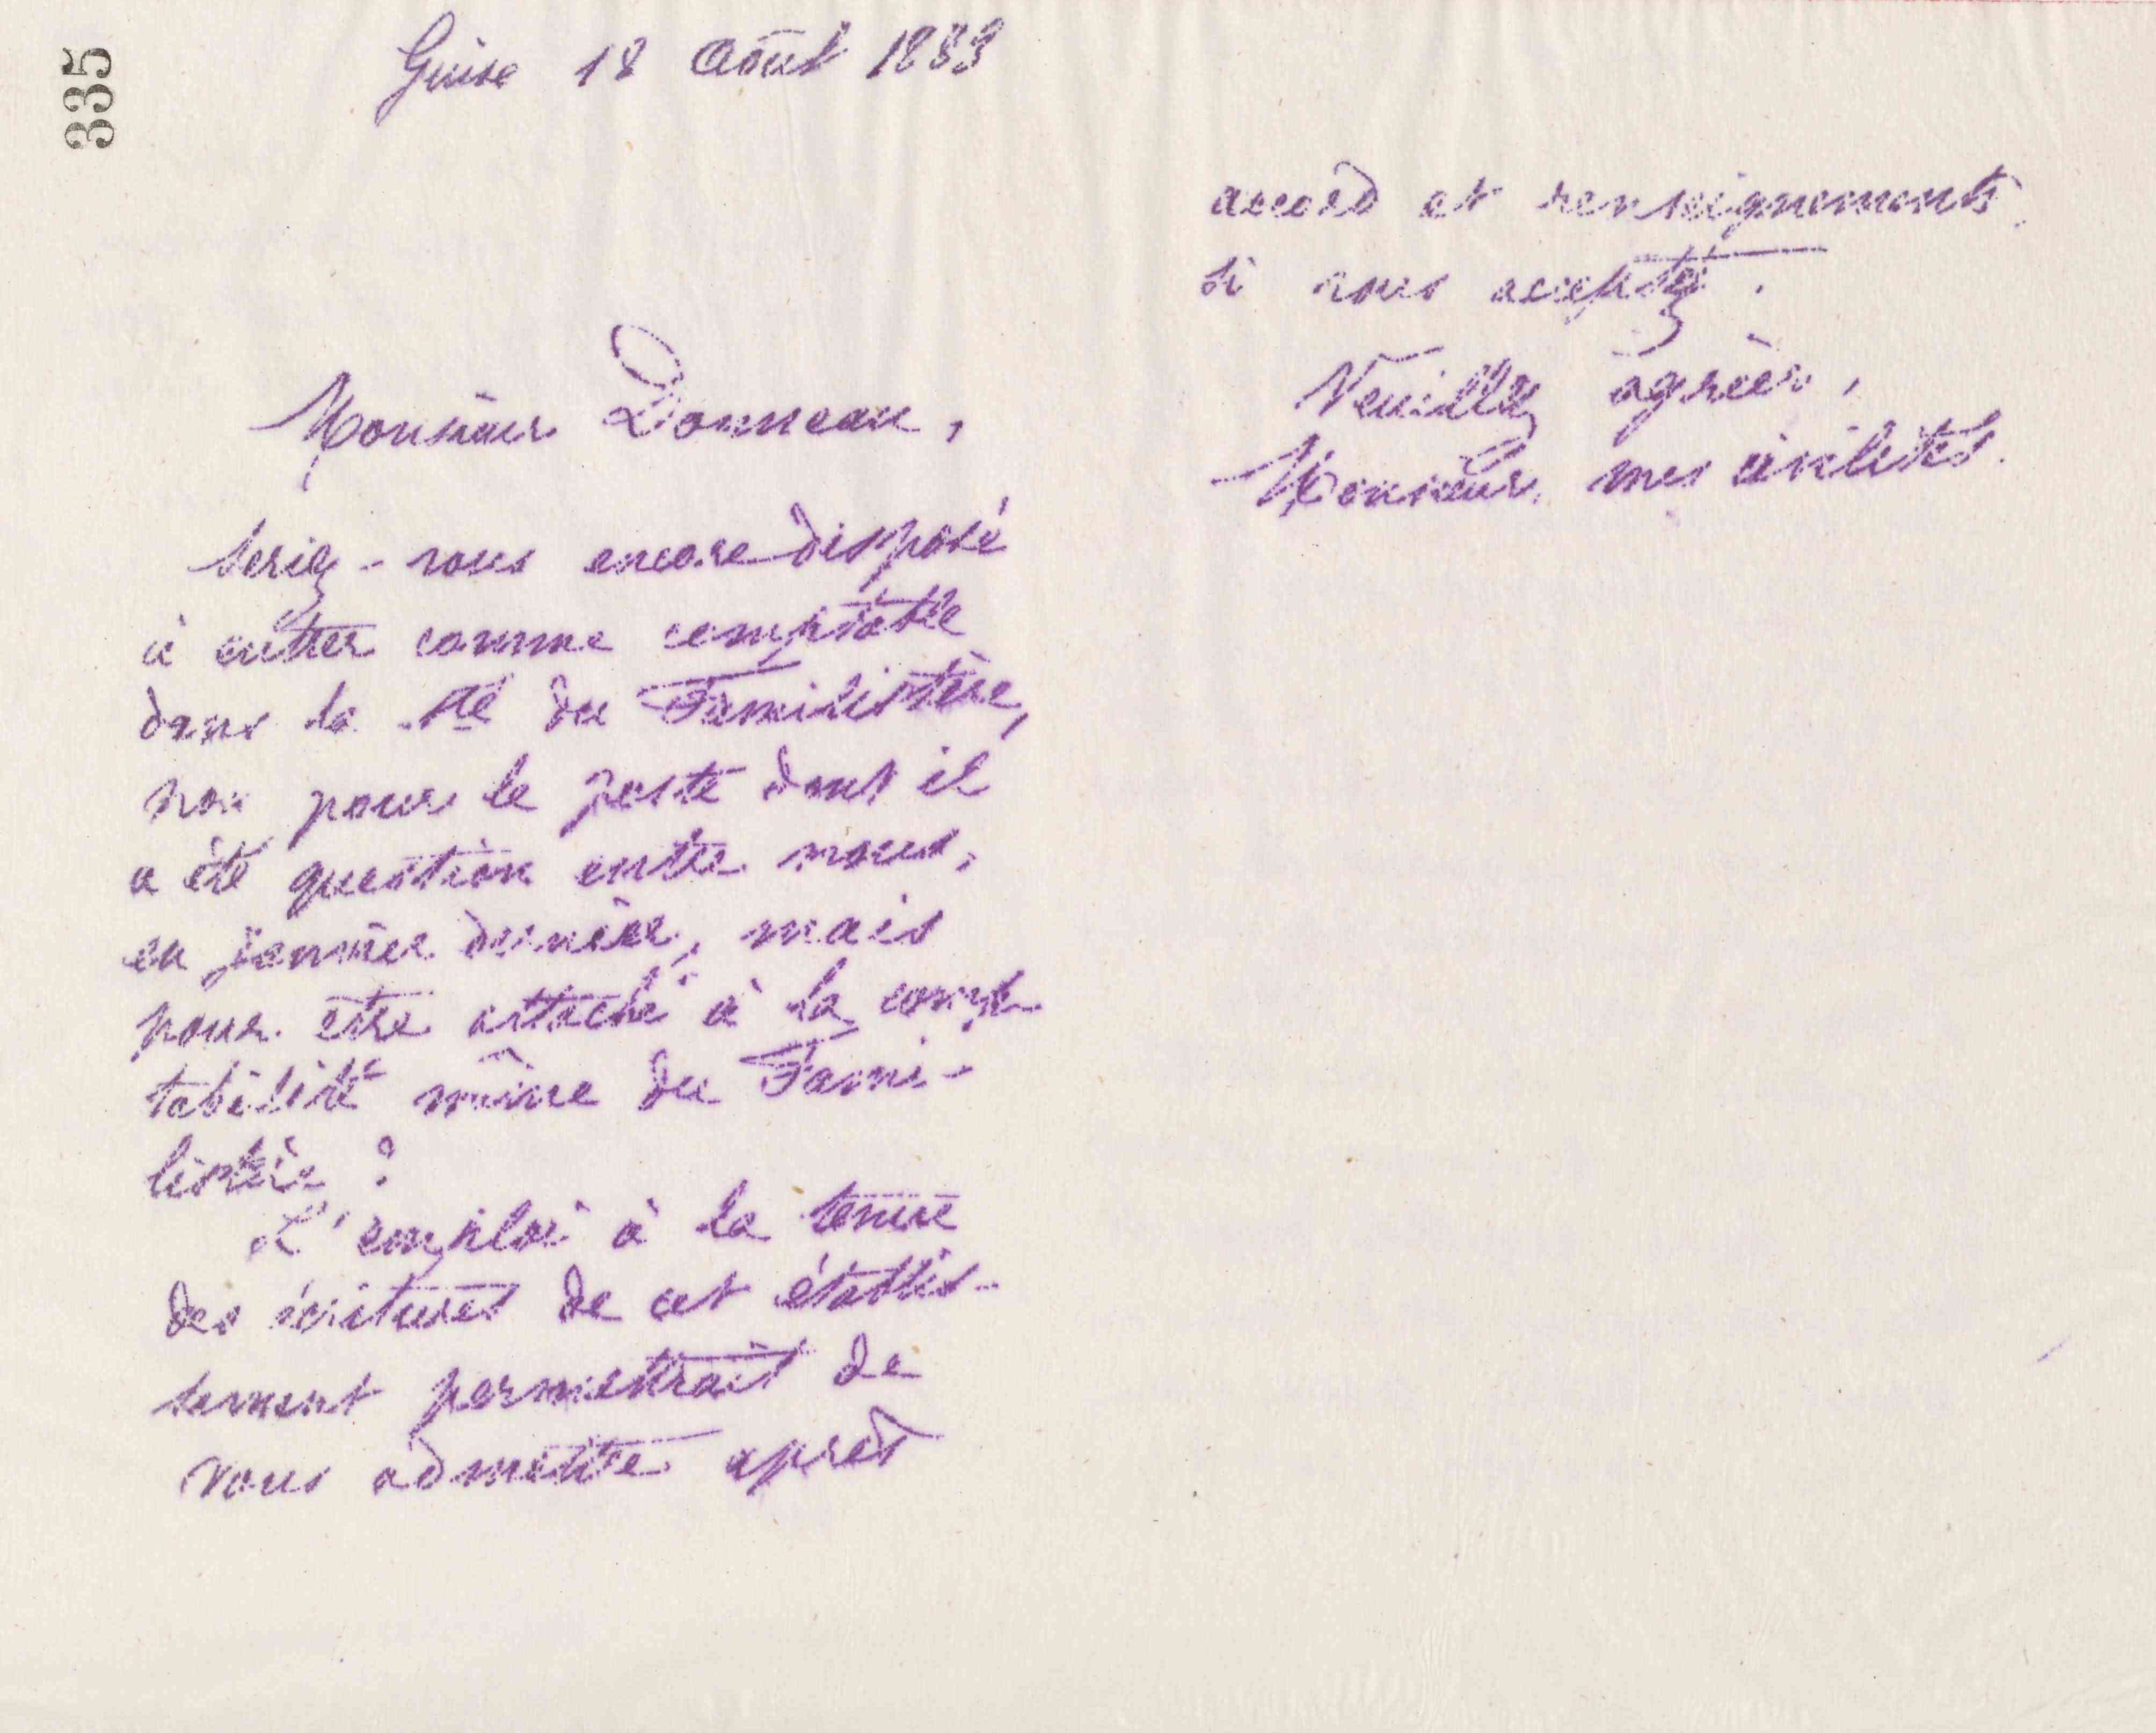 335
Guise 18 Août 1883
Monsieur Donneau,
Seriez-vous encore disposé
à entrer comme comptable
dans la Sté du Familistère,
non pour le poste dont il
a été question entre nous,
en janvier dernier, mais
pour être attaché à la comp-
tabilité même du Fami-
listère ?
L'emploi à la tenue
des écritures de cet établis-
sement permettrait de
vous admettre après
accord et renseignements
si vous acceptez.
Veuillez agréer,
Monsieur, mes civilités.